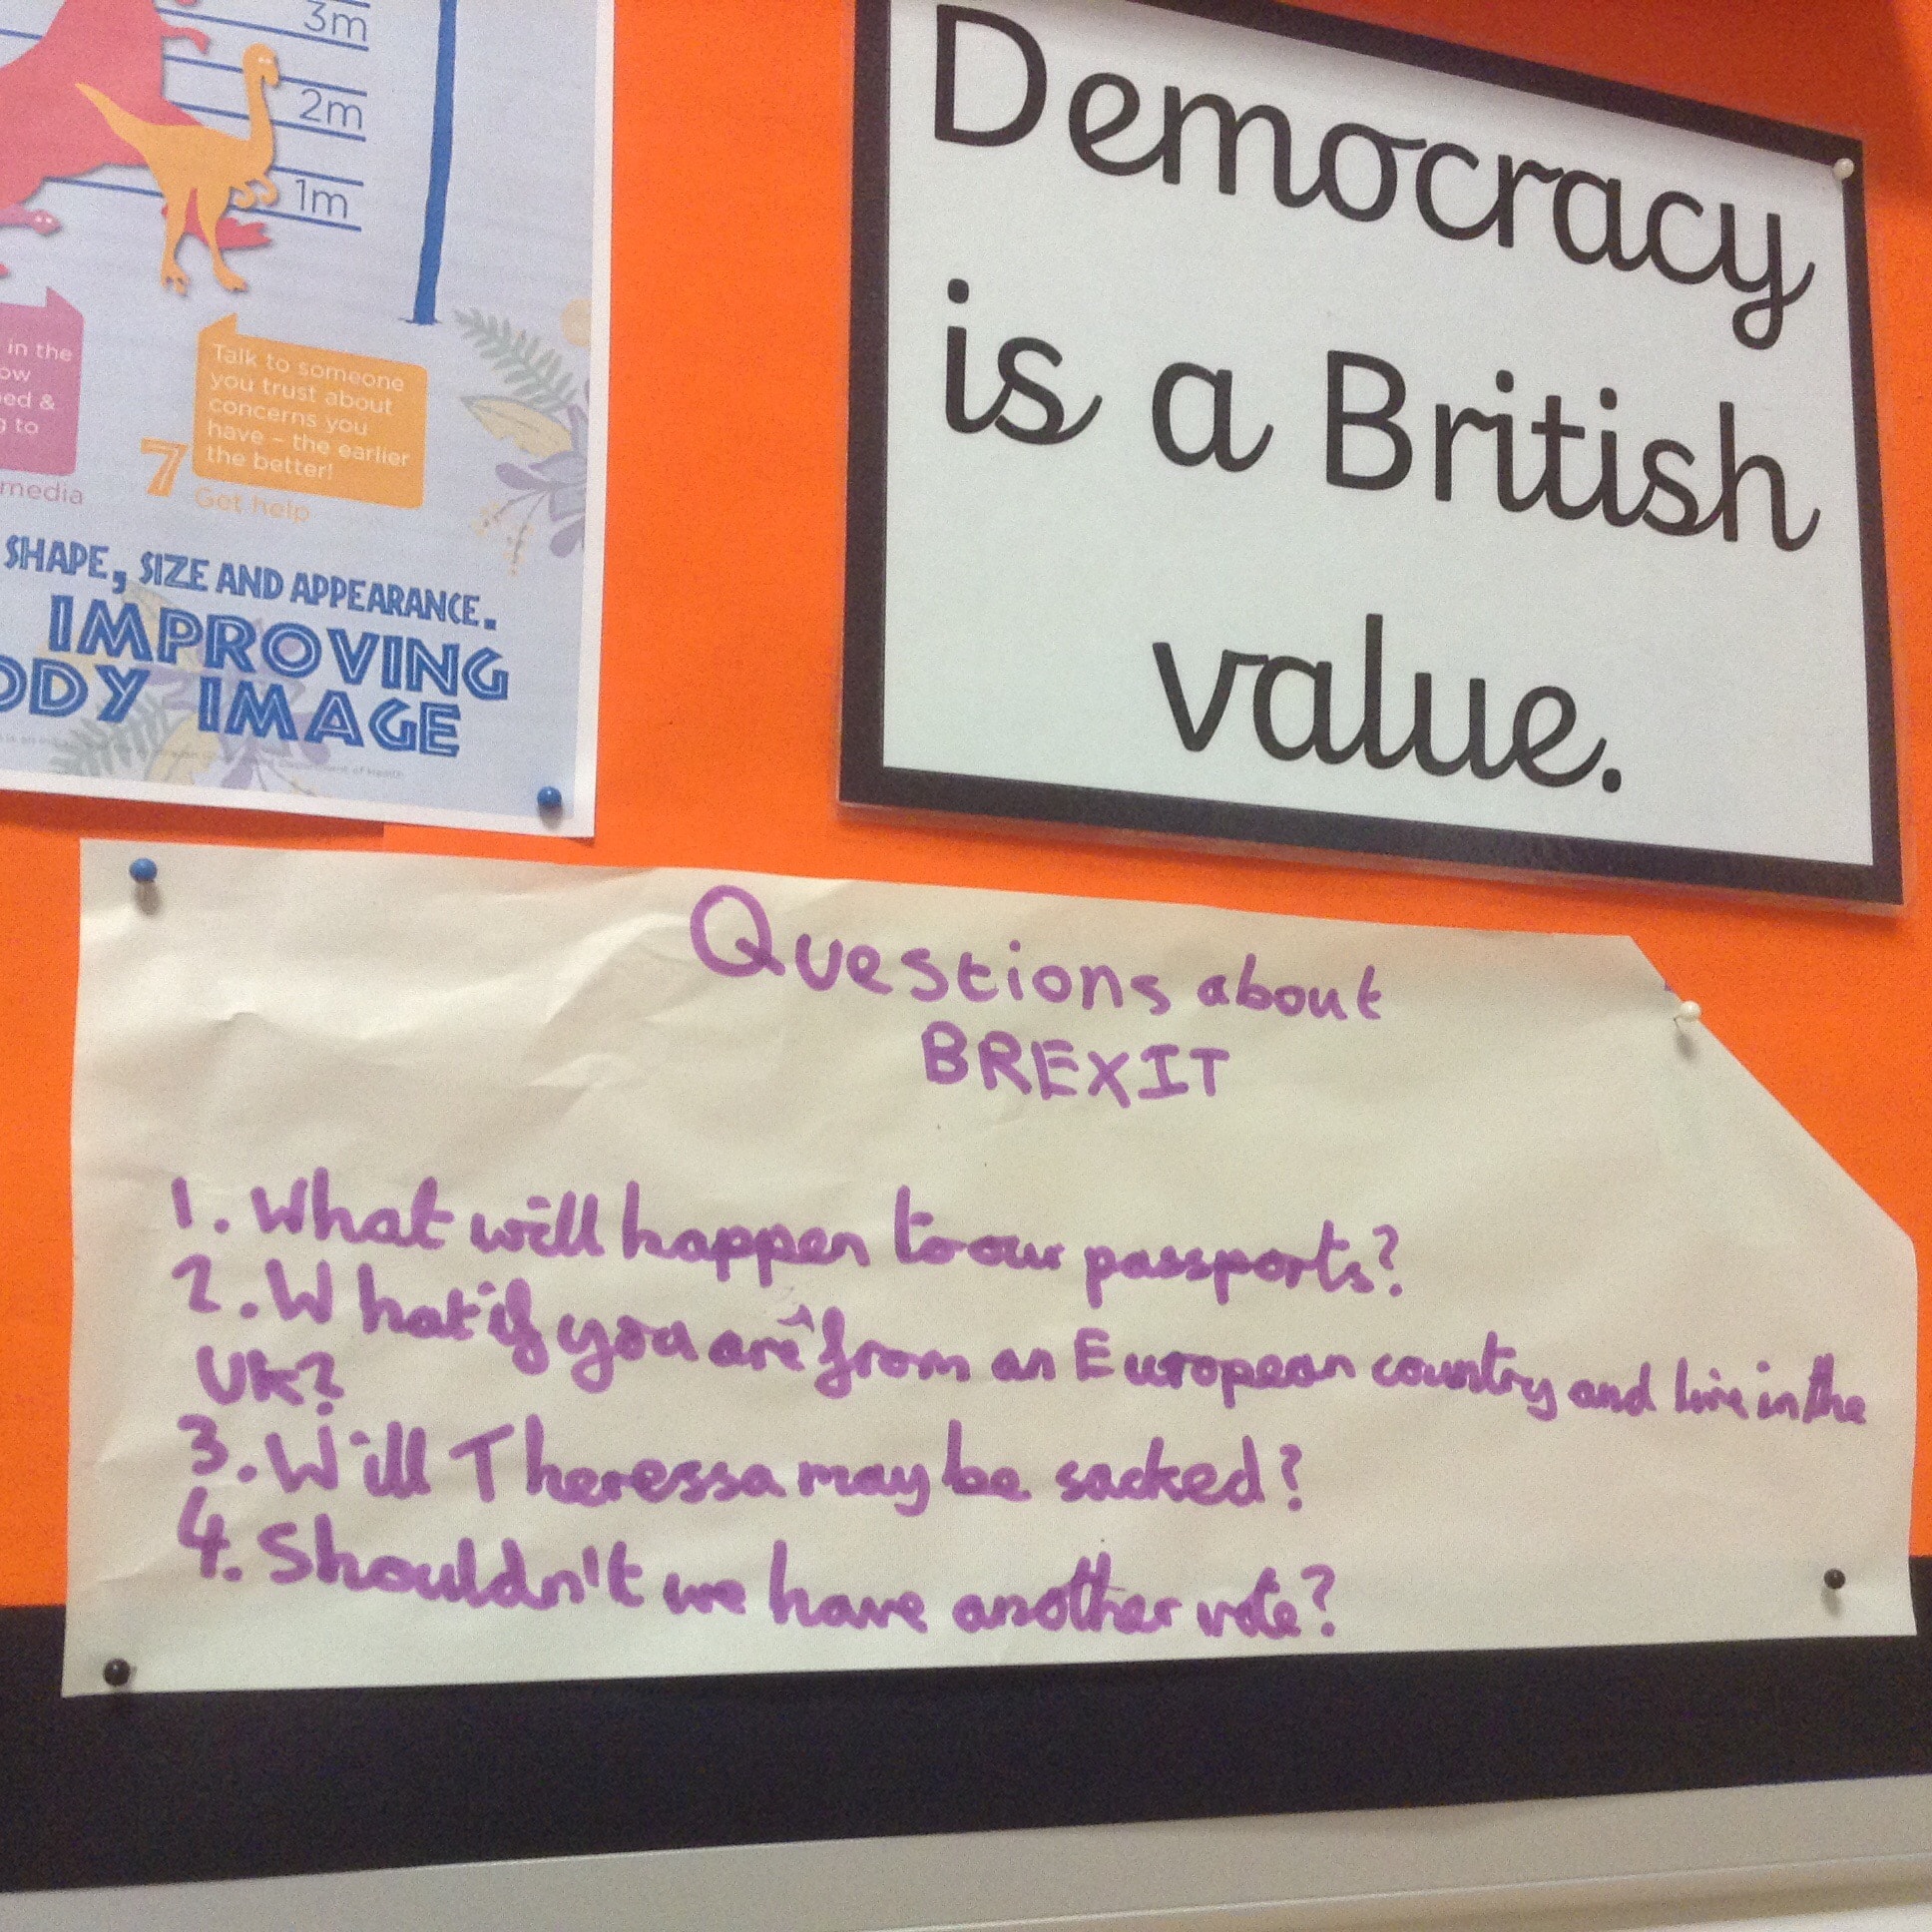 3m
2m
1m
in the
ow
ed &
g to
media
Talk to someone
you trust about
concerns you
have – the earlier
the better!
7
Get help
SHAPE, SIZE AND APPEARANCE.
IMPROVING
ODY IMAGE
Department of Health
Democracy
is a British
value.
Questions about
BREXIT
1. What will happen to our passports?
2. What if you are from an European country and live in the
UK?
3. Will Theressa may be sacked?
4. Shouldn't we have another vote?